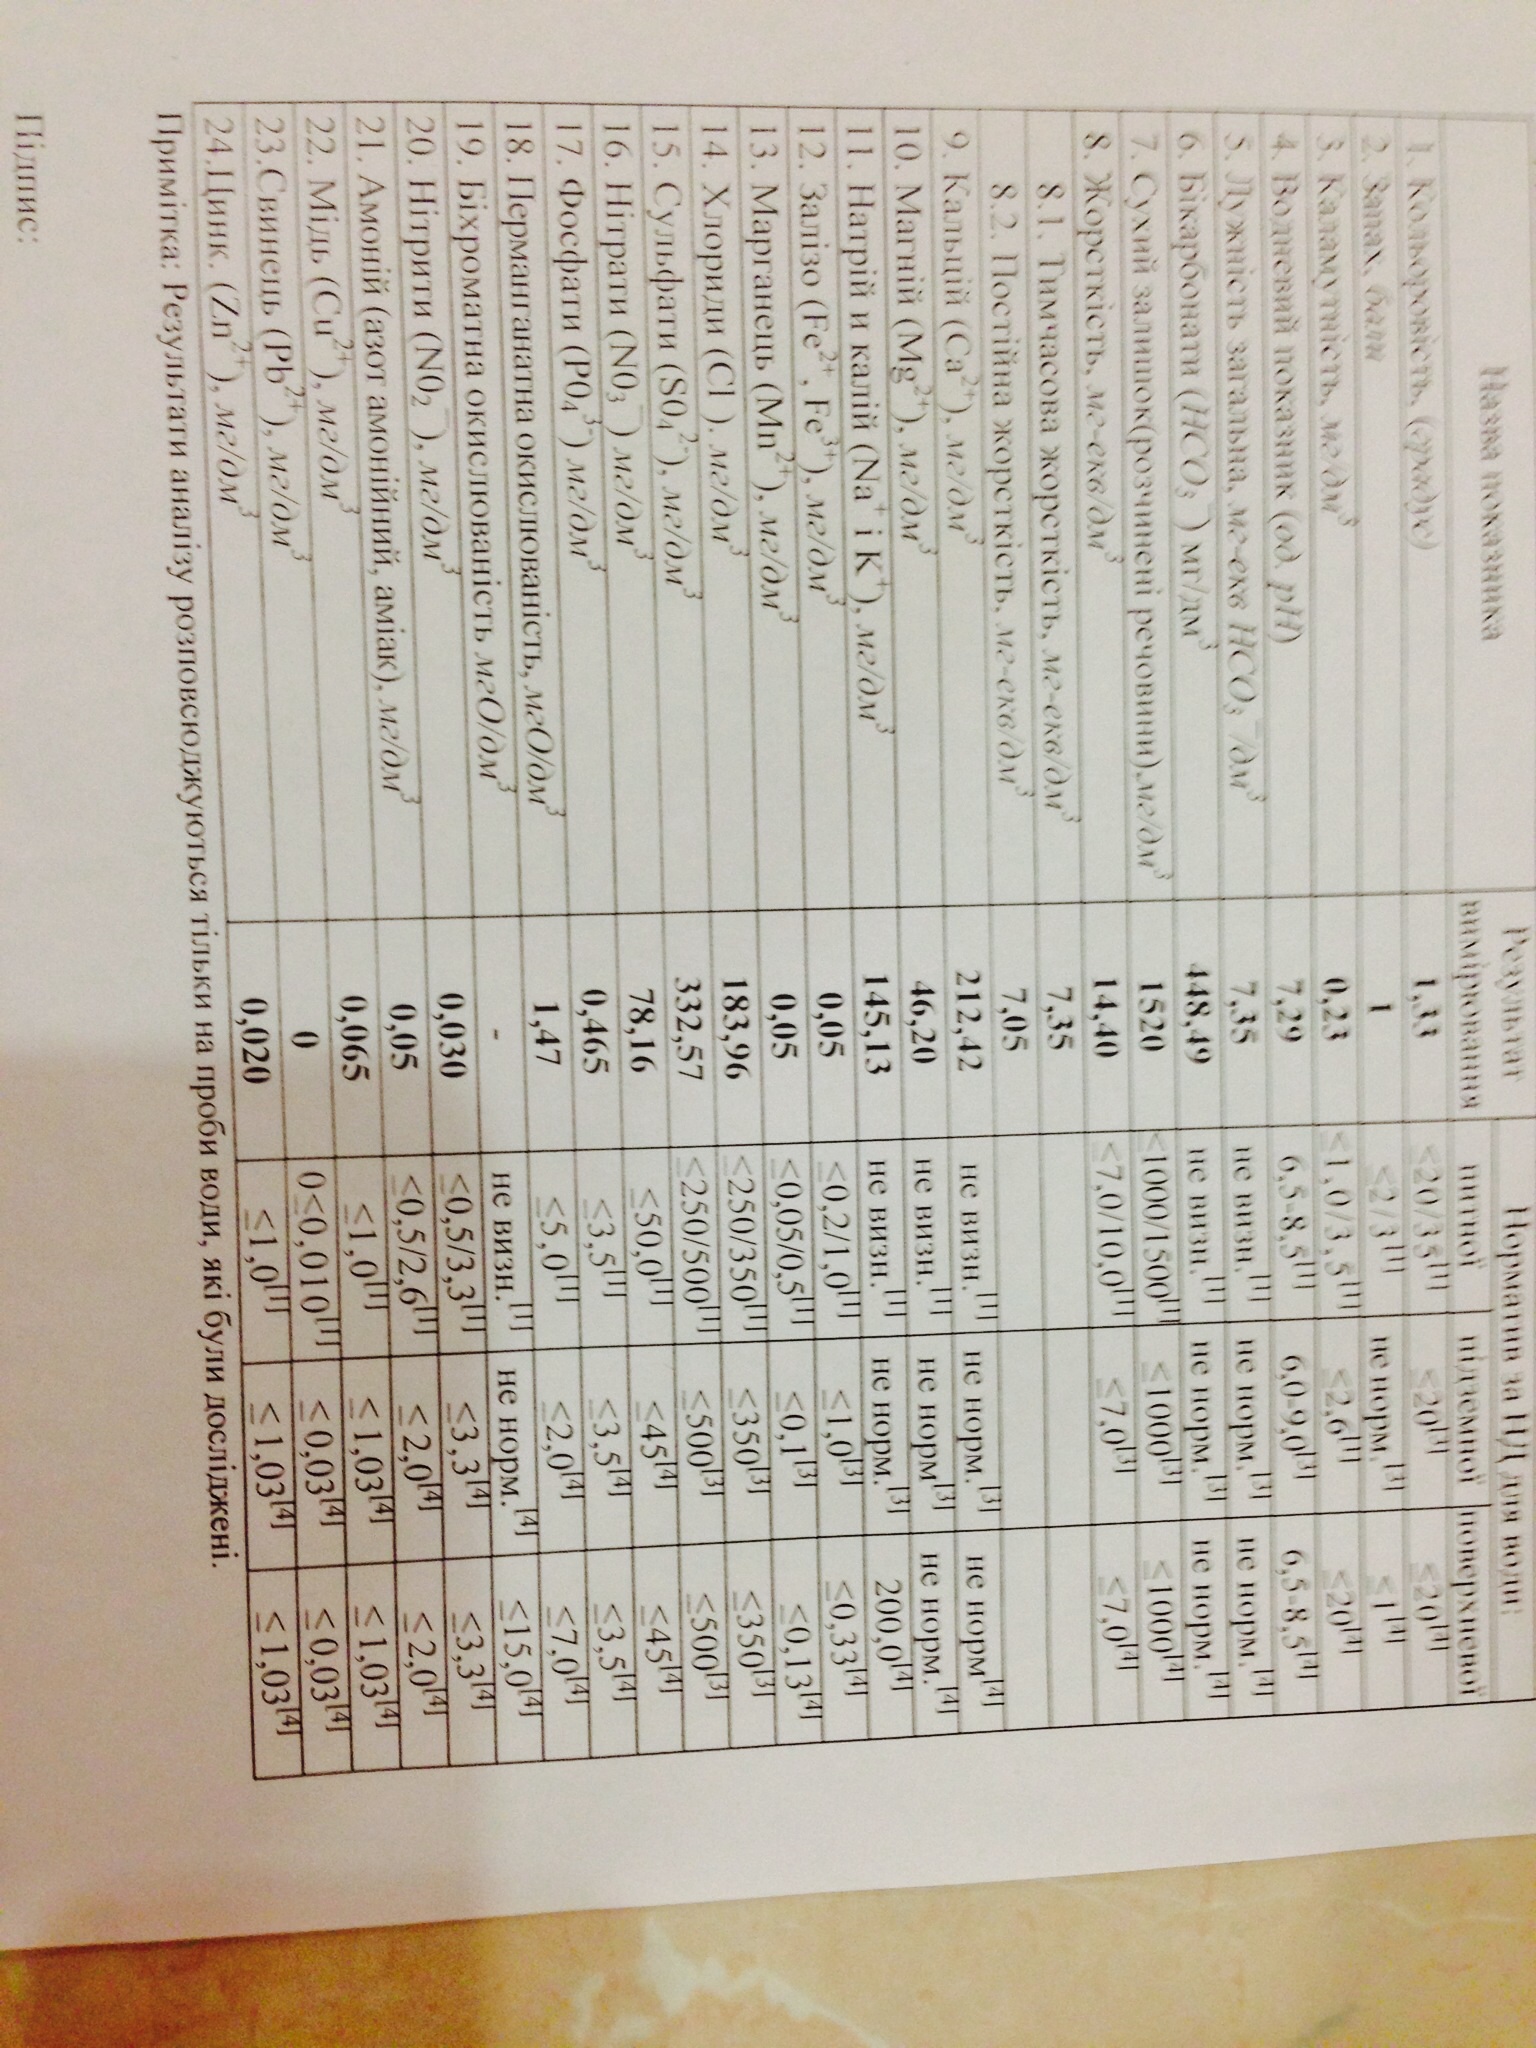 Назва показника Результат вимірювання Норматив за НД для води:
питної підземної поверхневої
1. Кольоровість, (градус) 1,33 ≤20/35[1] ≤20[1] ≤20[4]
2. Запах, бали 1 ≤2/3[1] не норм.[3] ≤1[4]
3. Каламутність, мг/дм³ 0,23 ≤1,0/3,5[1] ≤2,6[1] ≤20[4]
4. Водневий показник (од. рН) 7,29 6,5-8,5[1] 6,0-9,0[3] 6,5-8,5[4]
5. Лужність загальна, мг-екв НСО₃⁻/дм³ 7,35 не визн.[1] не норм.[3] не норм.[4]
6. Бікарбонати (НСО₃⁻) мг/дм³ 448,49 не визн.[1] не норм.[3] не норм.[4]
7. Сухий залишок(розчинені речовини),мг/дм³ 1520 ≤1000/1500[1] ≤1000[3] ≤1000[4]
8. Жорсткість, мг-екв/дм³ 14,40 ≤7,0/10,0[1] ≤7,0[3] ≤7,0[4]
8.1. Тимчасова жорсткість, мг-екв/дм³ 7,35
8.2. Постійна жорсткість, мг-екв/дм³ 7,05
9. Кальцій (Ca²⁺), мг/дм³ 212,42 не визн.[1] не норм.[3] не норм[4]
10. Магній (Mg²⁺), мг/дм³ 46,20 не визн.[1] не норм[3] не норм.[4]
11. Натрій и калій (Na⁺ і K⁺), мг/дм³ 145,13 не визн.[1] не норм.[3] 200,0[4]
12. Залізо (Fe²⁺, Fe³⁺), мг/дм³ 0,05 ≤0,2/1,0[1] ≤1,0[3] ≤0,33[4]
13. Марганець (Mn²⁺), мг/дм³ 0,05 ≤0,05/0,5[1] ≤0,1[3] ≤0,13[4]
14. Хлориди (Cl⁻), мг/дм³ 183,96 ≤250/350[1] ≤350[3] ≤350[3]
15. Сульфати (S0₄²⁻), мг/дм³ 332,57 ≤250/500[1] ≤500[3] ≤500[3]
16. Нітрати (N0₃⁻) мг/дм³ 78,16 ≤50,0[1] ≤45[4] ≤45[4]
17. Фосфати (P0₄³⁻) мг/дм³ 0,465 ≤3,5[1] ≤3,5[4] ≤3,5[4]
18. Перманганатна окислюваність, мгО/дм³ 1,47 ≤5,0[1] ≤2,0[4] ≤7,0[4]
19. Біхроматна окислюваність мгО/дм³ - не визн.[1] не норм.[4] ≤15,0[4]
20. Нітрити (N0₂⁻), мг/дм³ 0,030 ≤0,5/3,3[1] ≤3,3[4] ≤3,3[4]
21. Амоній (азот амонійний, аміак), мг/дм³ 0,05 ≤0,5/2,6[1] ≤2,0[4] ≤2,0[4]
22. Мідь (Cu²⁺), мг/дм³ 0,065 ≤1,0[1] ≤1,03[4] ≤1,03[4]
23.Свинець (Pb²⁺), мг/дм³ 0 0≤0,010[1] ≤0,03[4] ≤0,03[4]
24.Цинк. (Zn²⁺), мг/дм³ 0,020 ≤1,0[1] ≤1,03[4] ≤1,03[4]
Примітка: Результати аналізу розповсюджуються тільки на проби води, які були досліджені.
Підпис: